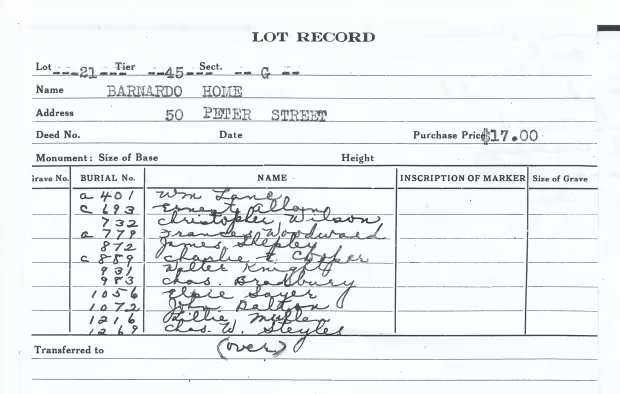 LOT RECORD
Lot ---21--- Tier --45--- Sect. -- G --
Name BARNARDO HOME
Address 50 PETER STREET
Deed No. Date Purchase Price $17.00
Monument: Size of Base Height
Grave No. BURIAL No. NAME - INSCRIPTION OF MARKER Size of Grave
a 401 Wm Lane
c 693 Ernest Allan
732 Christopher Wilson
a 779 Frances Woodward
872 James Shepley
c 889 Charlie t. Cooper
931 Walter Knight
983 Chas. Bradbury
1056 Elsie Sayer
1072 John Dalton
1216 Lillie Mullen
1269 Chas. W. Steyles
Transferred to (over)